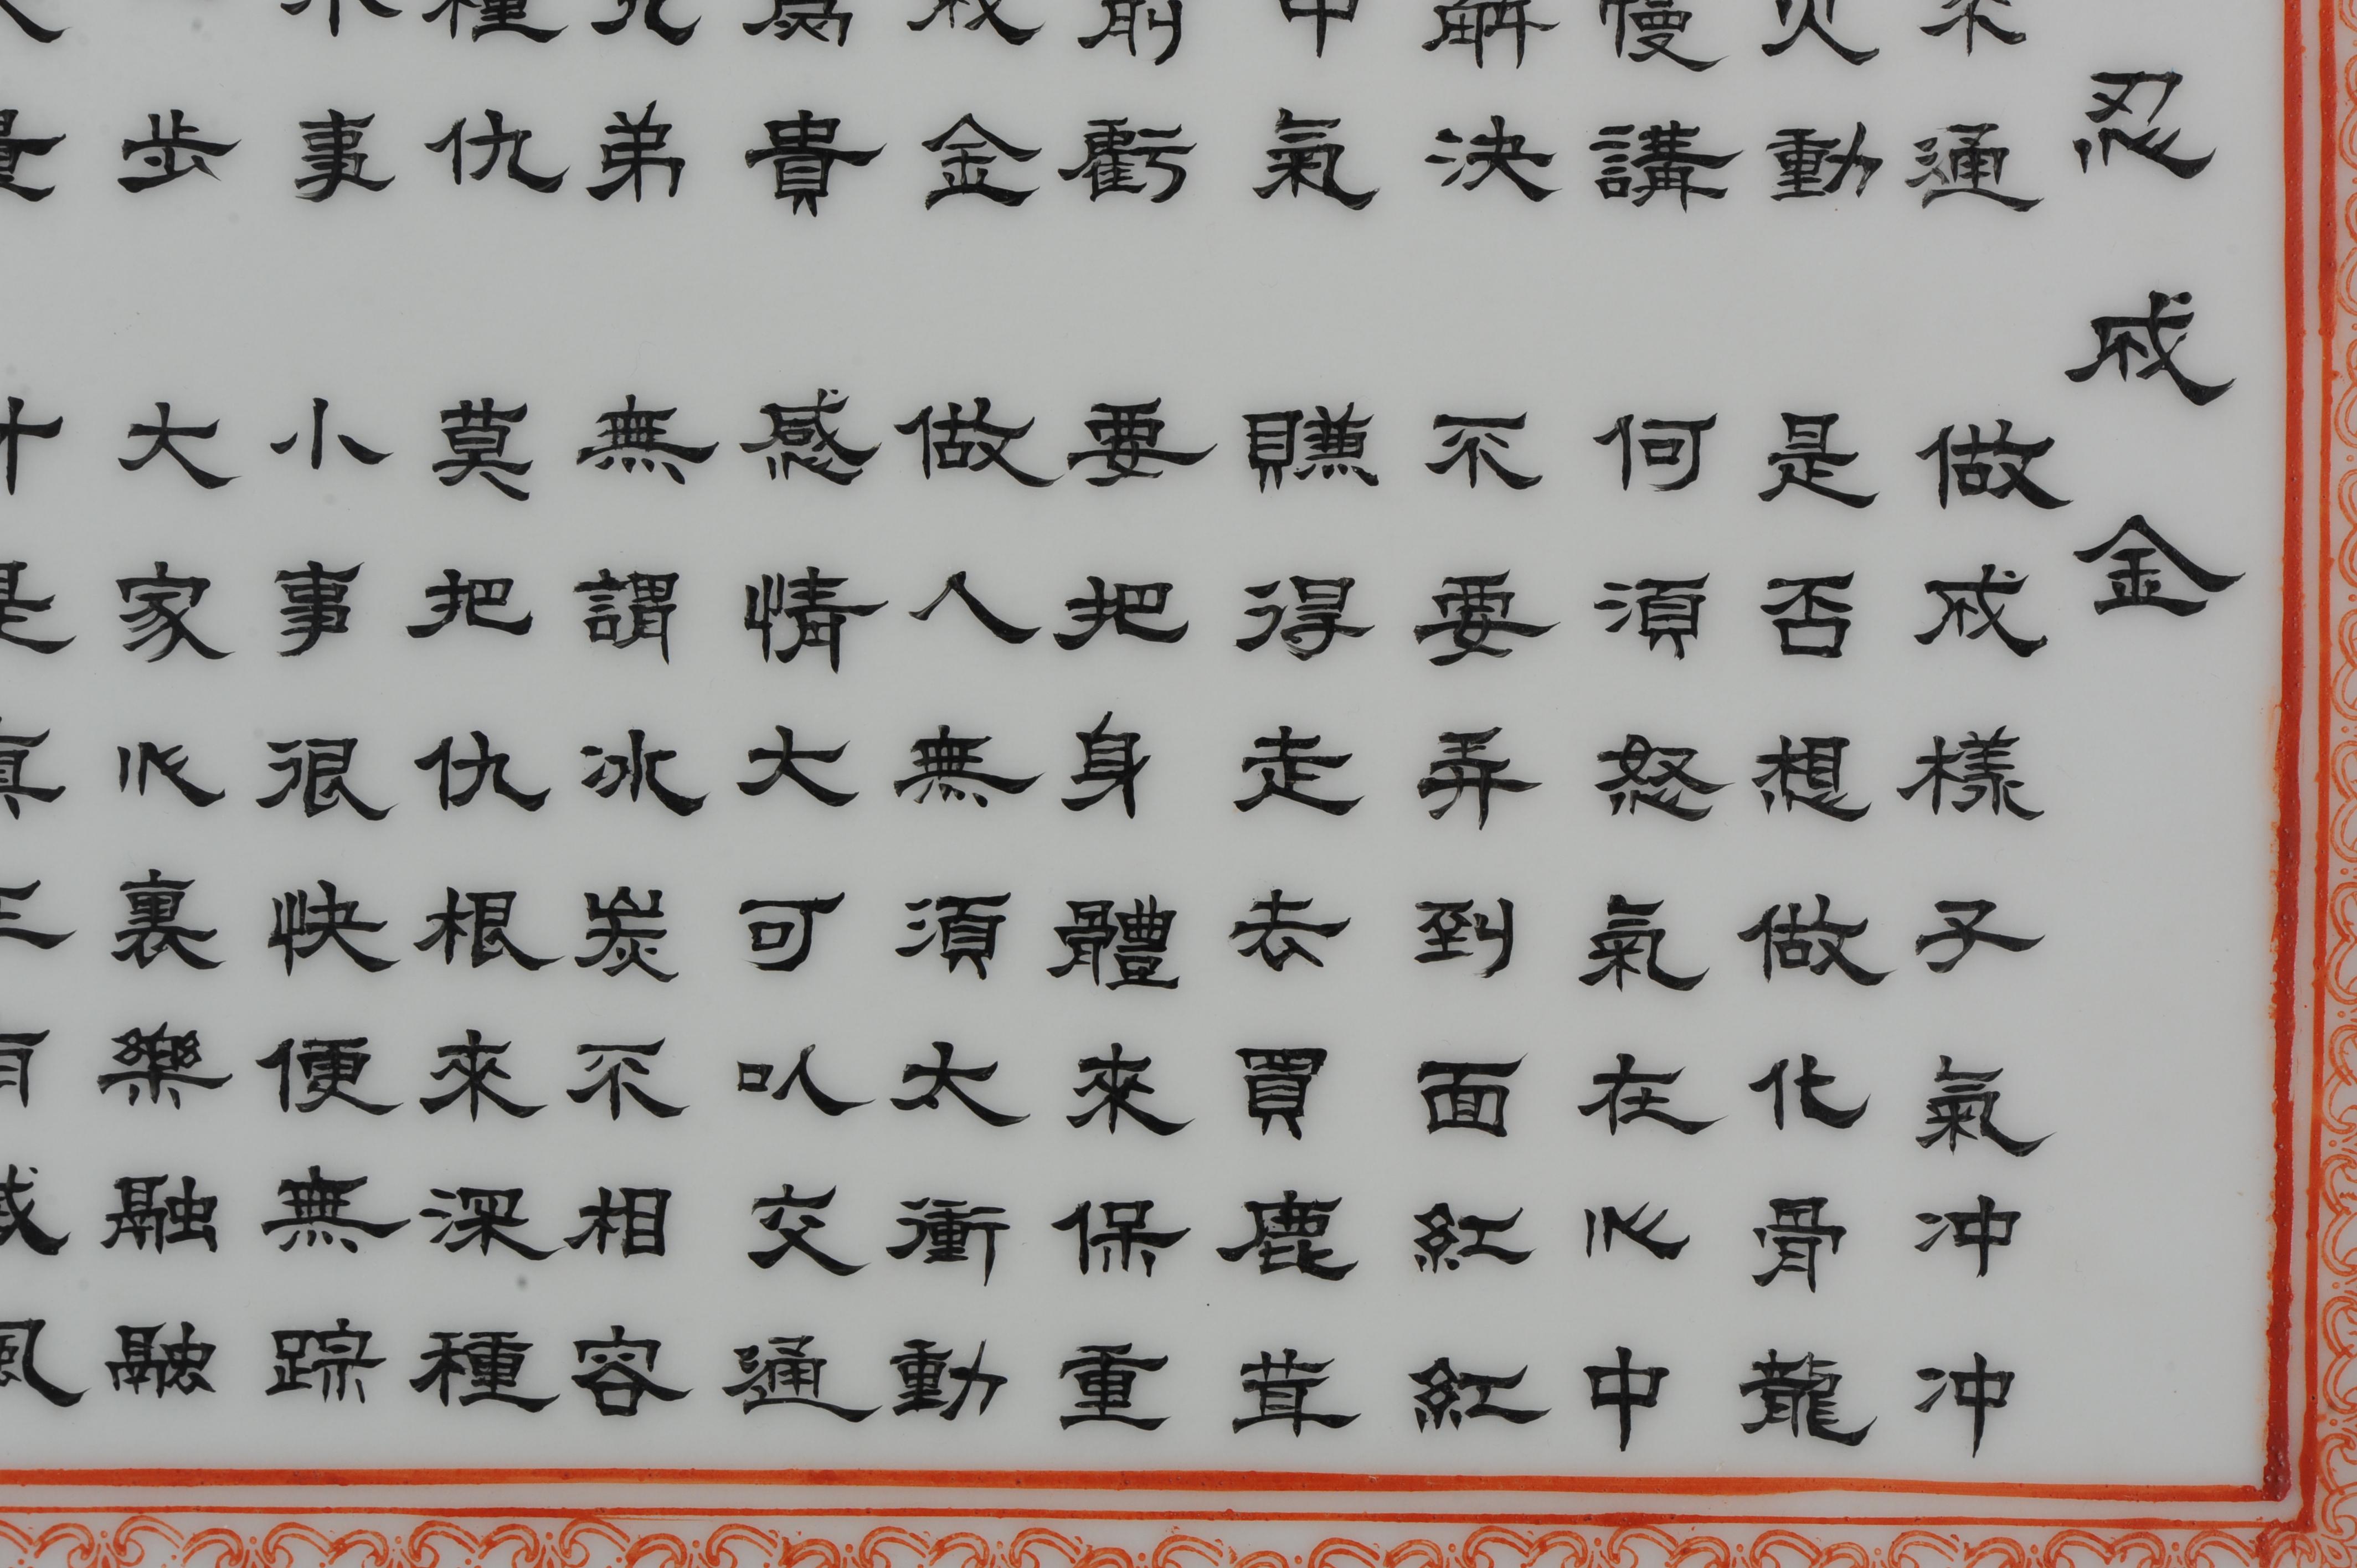 忍成金
通 做成樣子氣冲冲
火動 是否想做化骨龍
慢講 何須怒氣在心中
解決 不要弄到面紅紅
中氣 賺得走去買鹿茸
前虧 要把身體來保重
成金 做人無須太衝動
爲貴 感情大可以交通
弟 無謂冰炭不相容
種仇 莫把仇根來深種
事 小事很快便無踪
步 大家心裏樂融融